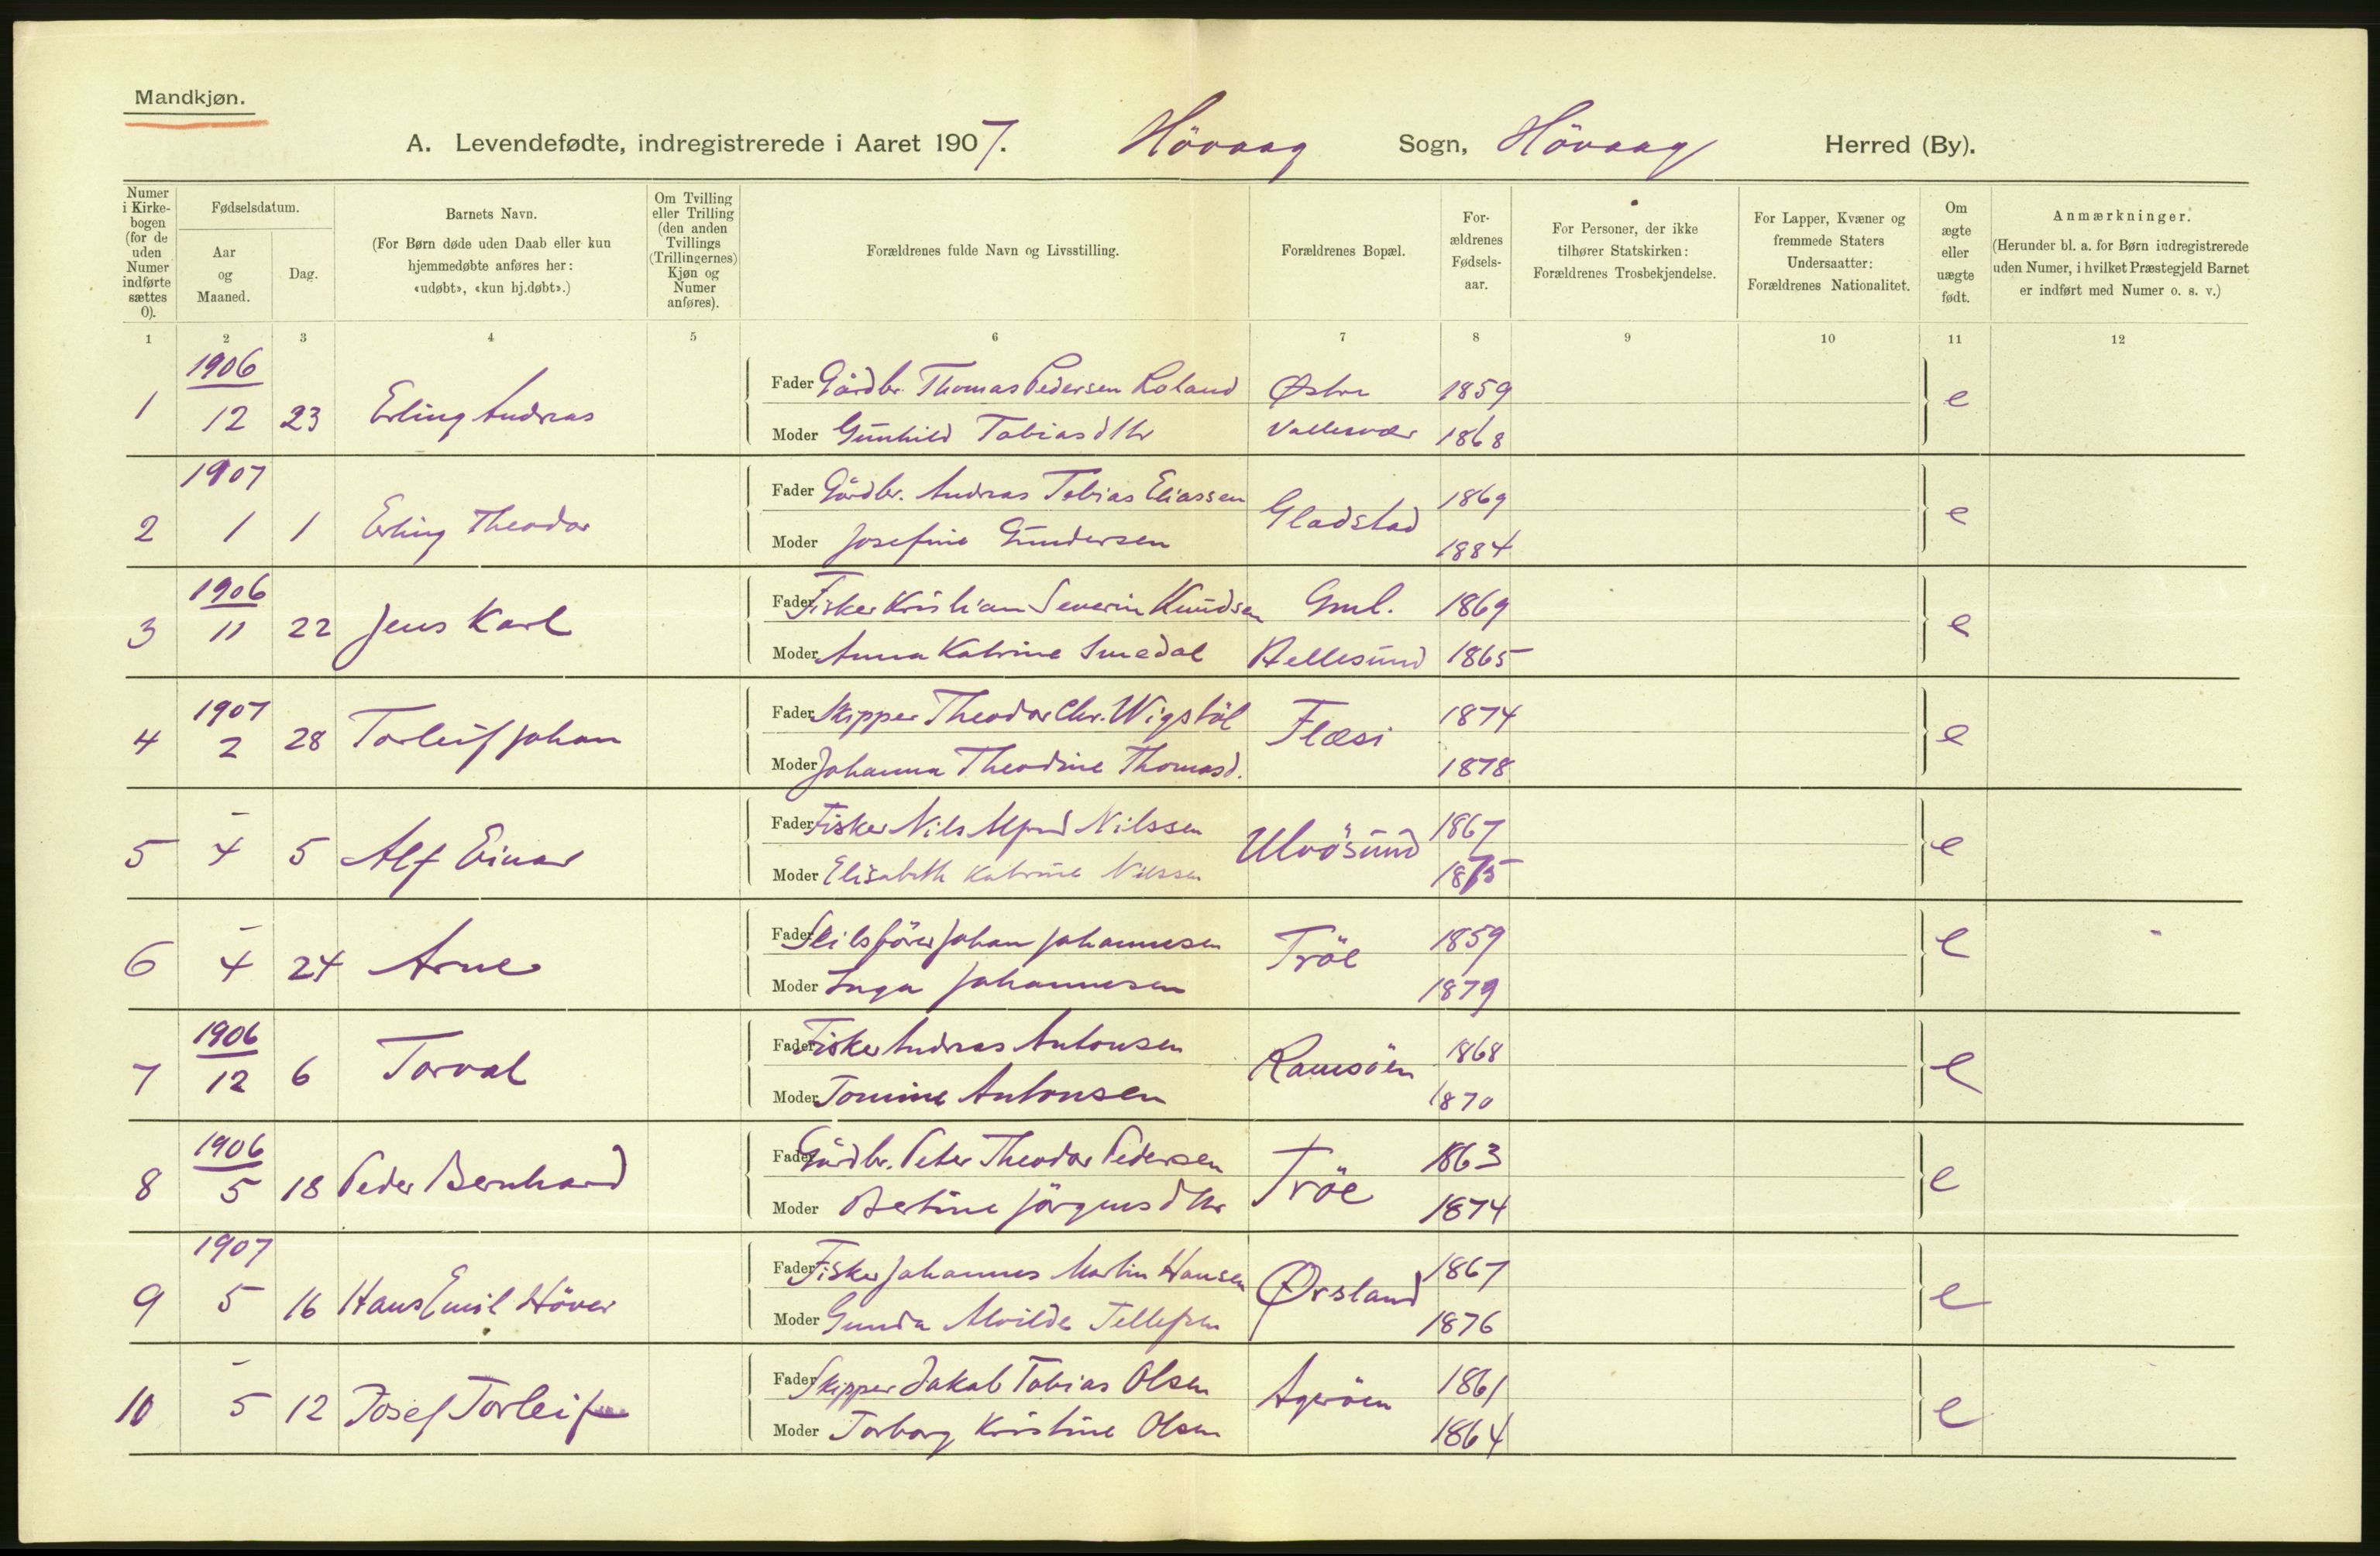 Mandkjøn.
A. Levendefødte, indregistrerede i Aaret 1907. Hövaag Sogn, Hövaag Herred (By).
Numer i Kirkebogen (for de uden Numer indførte sættes 0).
Fødselsdatum.
Aar og Maaned.
Dag.
Barnets Navn.
(For Børn døde uden Daab eller kun hjemmedøbte anføres her: «udøbt», «kun hj.døbt».)
Om Tvilling eller Trilling (den anden Tvillings (Trillingernes) Kjøn og Numer anføres).
Forældrenes fulde Navn og Livsstilling.
Forældrenes Bopæl.
Forældrenes Fødselsaar.
For Personer, der ikke tilhører Statskirken: Forældrenes Trosbekjendelse.
For Lapper, Kvæner og fremmede Staters Undersaatter: Forældrenes Nationalitet.
Om ægte eller uægte født.
Anmærkninger.
(Herunder bl. a. for Børn indregistrerede uden Numer, i hvilket Præstegjeld Barnet er indført med Numer o. s. v.)
1 2 3 4 5 6 7 8 9 10 11 12
1906
1 12 23 Erling Andreas
Fader Gårdbr. Thomas Pedersen Roland Østre 1859 e
Moder Gunhild Tobiasdtr Vallesvær 1868
1907
2 1 1 Erling Theodor
Fader Gårdbr. Andreas Tobias Eliassen Gladstad 1869 e
Moder Josefine Gundersen 1884
1906
3 11 22 Jens Karl
Fader Fisker Kristian Severin Knudsen Gml. 1869 e
Moder Anna Katrine Smedal Hellesund 1865
1907
4 2 28 Torleif Johan
Fader Skipper Theodor Chr. Wigstöl Flæsi 1874 e
Moder Johanna Theodine Thomasd. 1878
5 - 4 5 Alf Einar
Fader Fisker Nils Alfred Nilssen Ulvösund 1867 e
Moder Elisabeth Katrine Nilssen 1875
6 - 4 24 Arne
Fader Johan Johannesen Tröe 1859 e
Moder Inga Johannesen 1879
1906
7 12 6 Torval
Fader Fisker Andreas Antonsen Ramsöen 1868 e
Moder Tomine Antonsen 1870
1906
8 5 18 Peder Bernhard
Fader Gårdbr. Peter Theodor Pedersen Tröe 1863 e
Moder Bertine Jörgensdtr 1874
1907
9 5 16 Hans Emil Höver
Fader Fisker Johannes Martin Hansen Ørsland 1867 e
Moder Gunda Alvilde Tellefsen 1876
10 - 5 12 Josef Torleif
Fader Skipper Jakob Tobias Olsen Ageröen 1861 e
Moder Torborg Kristine Olsen 1864